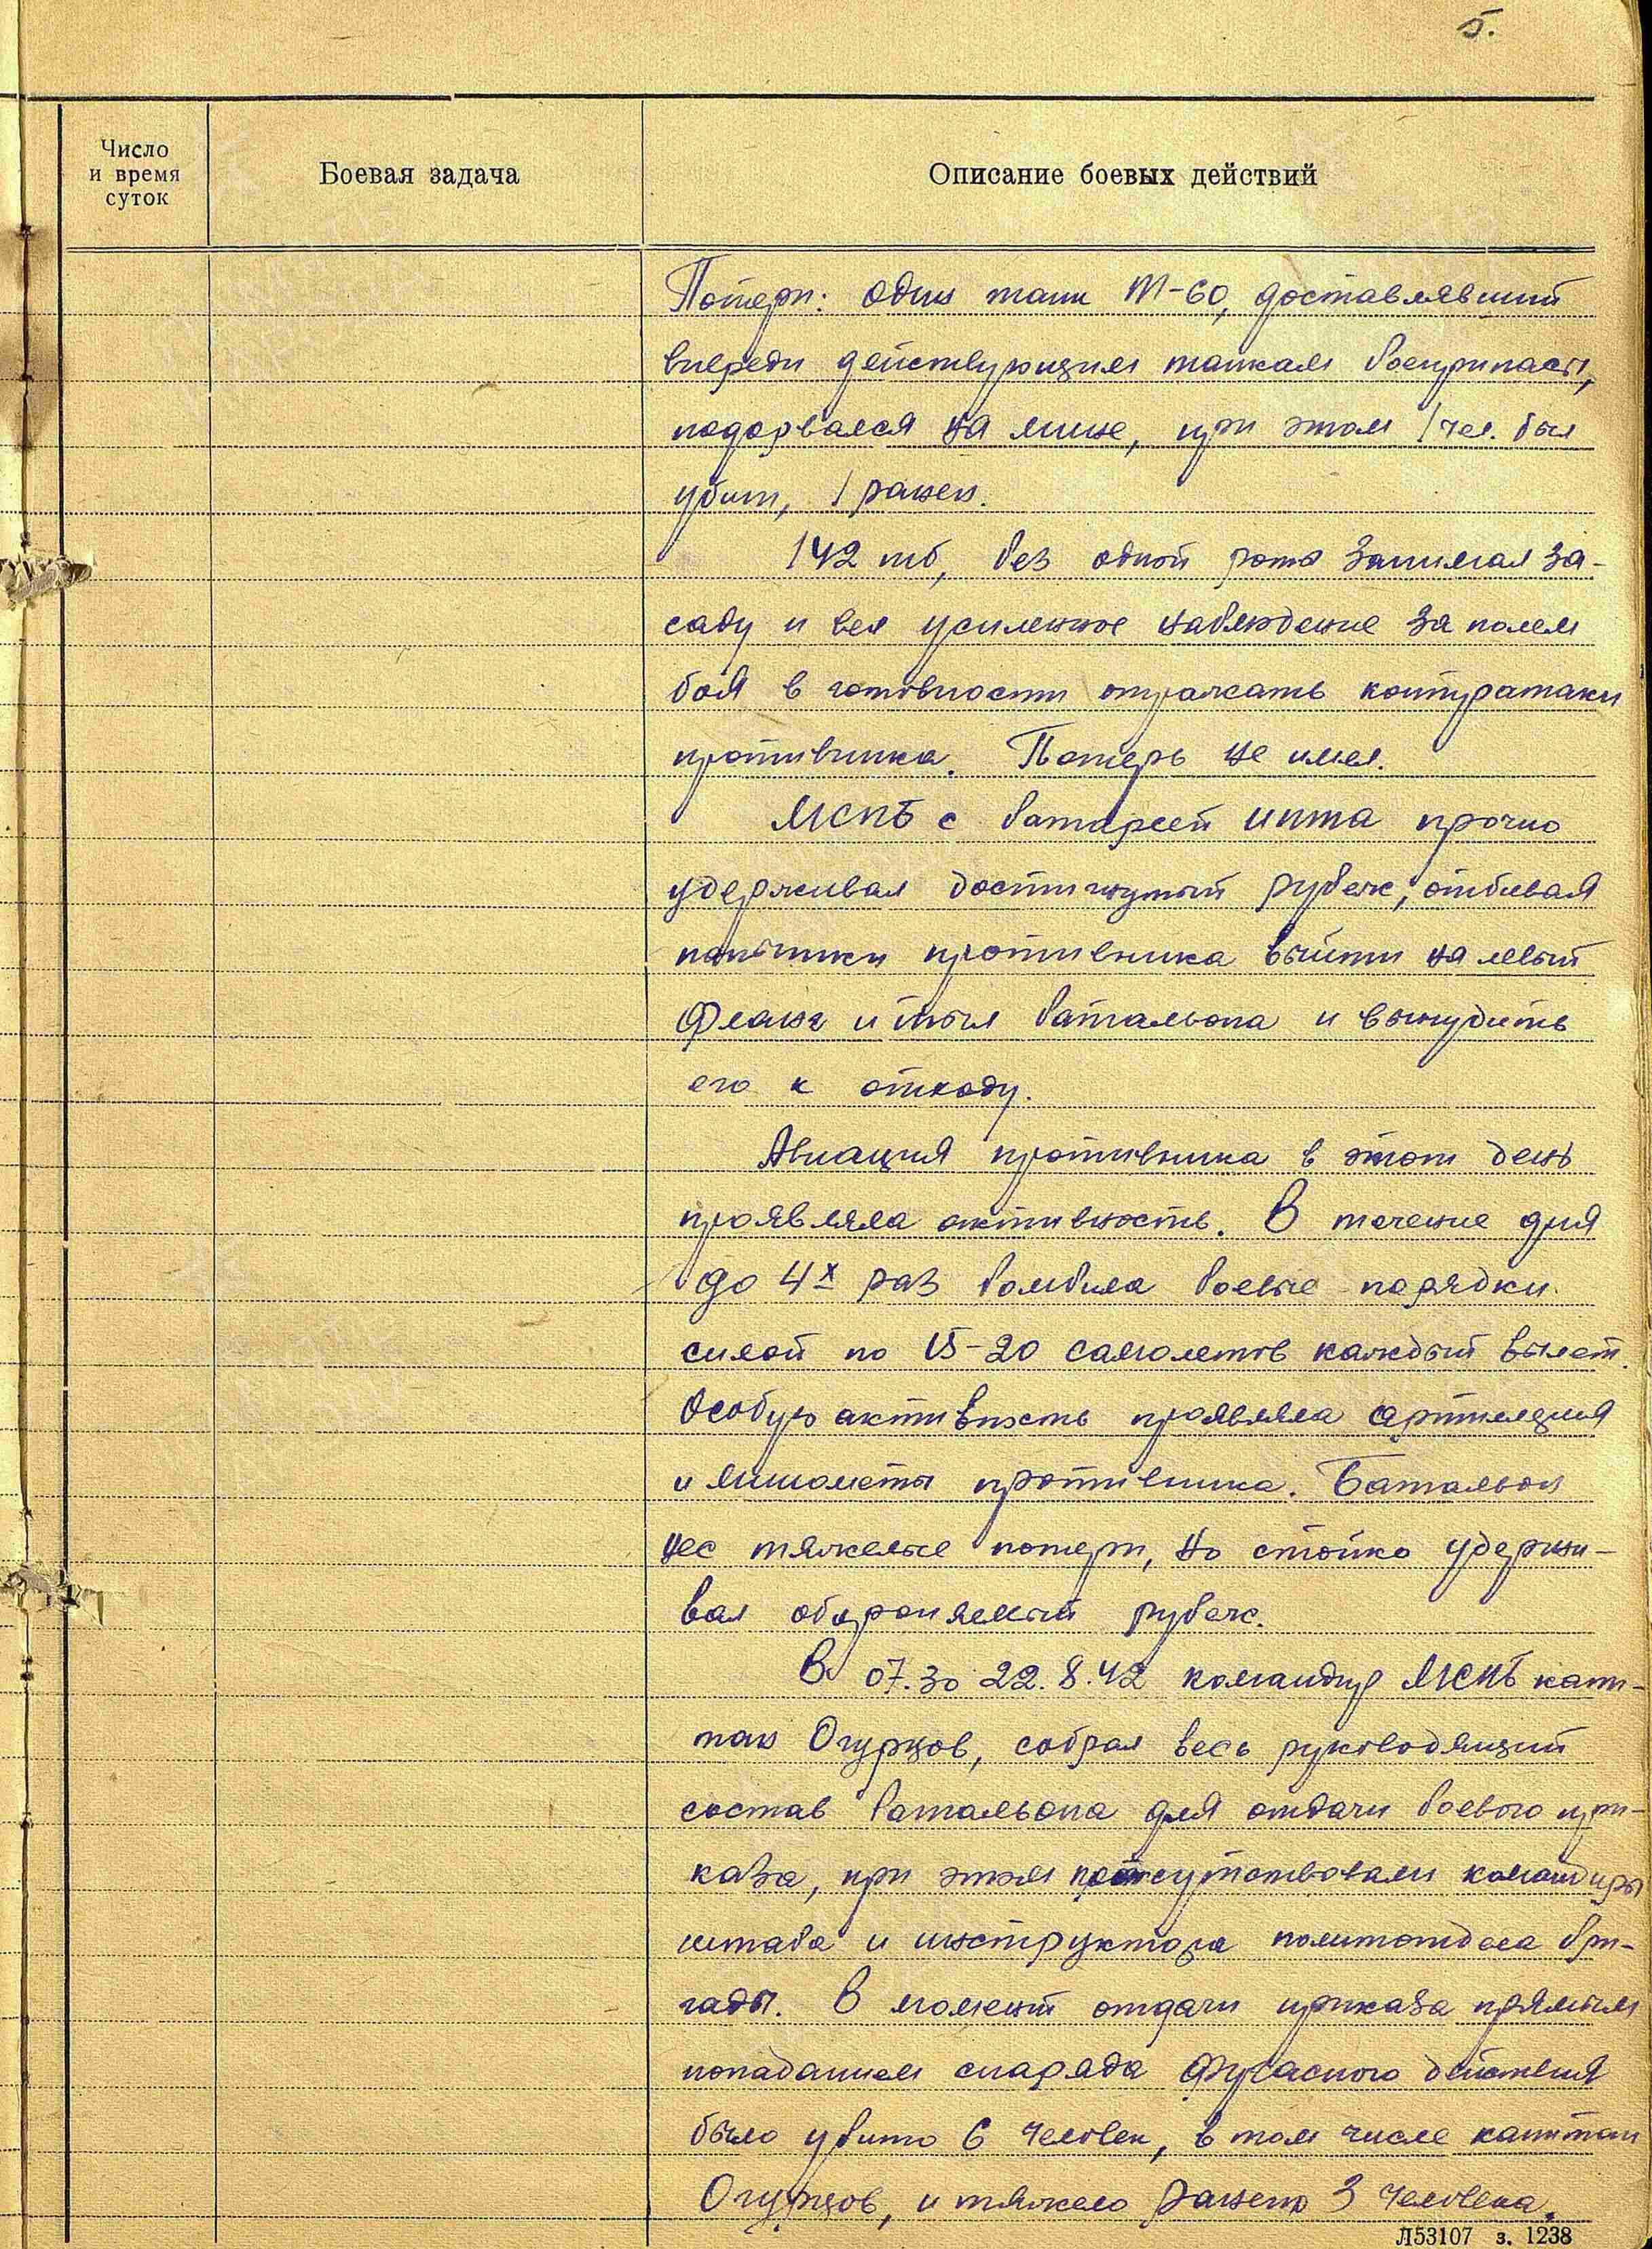 5.
Число
и время
суток
Боевая задача
Описание боевых действий
Потери: один танк Т-60, доставлявший
впереди действующим танкам боеприпасы,
подорвался на мине, при этом 1 чел. был
убит, 1 ранен.
142 тб, без одной роты занимал за-
саду и вел усиленное наблюдение за полем
боя в готовности отражать контратаки
противника. Потерь не имел.
МСПБ с батареей ипта прочно
удерживал достигнутый рубеж, отбивая
попытки противника выйти на левый
фланг и тыл батальона и вынудить
его к отходу.
Авиация противника в этот день
проявляла активность. В течение дня
до 4х раз бомбила боевые порядки
силой по 15-20 самолетов каждый вылет.
Особую активность проявляла артиллерия
и минометы противника. Батальон
нес тяжелые потери, но стойко удержи-
вал обороняемый рубеж.
В 07.30 22.8.42 командир МСПБ капи-
тан Огурцов, собрал весь руководящий
состав батальона для отдачи боевого при-
каза, при этом присутствовали командиры
штаба и инструктора политотдела бри-
гады. В момент отдачи приказа прямым
попаданием снаряда фугасного действия
было убито 6 человек, в том числе капитан
Огурцов, и тяжело ранено 3 человека.
Л53107 з. 1238